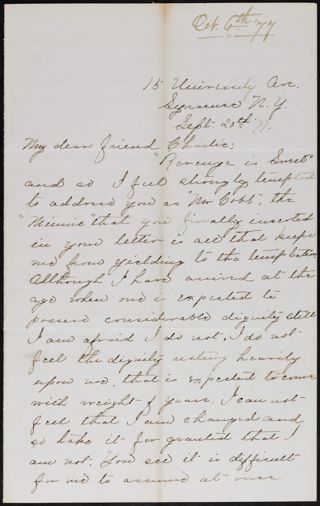 Oct. 6th '77
15 University Ave.
Syracuse N.Y.
Sept. 25th 77.
My dear friend Charlie;
"Revenge is Sweet"
and so I feel strongly tempted
to address you as "Mr Cobb", the
"Minnie" that you finally inserted
in your letter is all that keeps
me from yielding to the temptation
Although I have arrived at the
age when one is expected to
possess considerable dignity still
I am afraid I do not, I do not
feel the dignity resting heavily
upon me, that is expected to come
with weight of years. I can not
feel that I am changed and
so take it for granted that I
am not. You see it is difficult
for me to assume at once